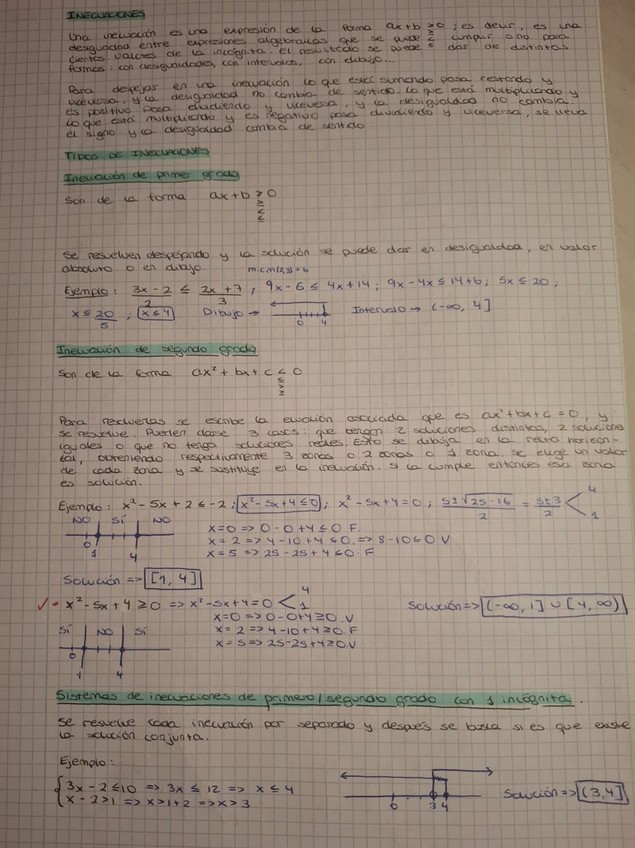 INECUACIONES
Una inecuación es una expresión de la forma ax+b ≥ 0 ; es decir, es una
desigualdad entre expresiones algebraicas que se puede cumplir o no para
ciertos valores de la incógnita. El resultado se puede dar de distintas
formas: con desigualdades, con intervalos, con dibujo...
Para despejar en una inecuación lo que está sumando pasa restando y
viceversa, y la desigualdad no cambia de sentido. Lo que está multiplicando y
es positivo pasa dividiendo y viceversa, y la desigualdad no cambia.
Lo que está multiplicando y es negativo pasa dividiendo y viceversa, se lleva
el signo y la desigualdad cambia de sentido
TIPOS DE INECUACIONES
Inecuación de primer grado
Son de la forma ax+b > 0
≥
<
≤
Se resuelven despejando y la solución se puede dar en desigualdad, en valor
absoluto o en dibujo. m.c.m(2,3)=6
Ejemplo: 3x-2/2 ≤ 2x+7/3 ; 9x-6 ≤ 4x+14 ; 9x-4x ≤ 14+6 ; 5x ≤ 20 ;
x ≤ 20/5 ; x ≤ 4 Dibujo → 0 4 Intervalo → (-∞, 4]
Inecuación de segundo grado
Son de la forma ax² + bx + c < 0
≤
>
≥
Para resolverlas se escribe la ecuación asociada que es ax²+bx+c=0, y
se resuelve. Pueden darse 3 casos: que tengan 2 soluciones distintas, 2 soluciones
iguales o que no tenga soluciones reales. Esto se dibuja en la recta horizon-
tal, obteniendo respectivamente 3 zonas o 2 zonas o 1 zona. Se elige un valor
de cada zona y se sustituye en la inecuación. Si la cumple entonces esa zona
es solución.
Ejemplo: x²-5x+2 ≤ -2 ; x²-5x+4 ≤ 0 ; x²-5x+4=0 ; 5±√25-16/2 = 5±3/2 < 4 1
NO SÍ NO
0 1 4
x=0 => 0-0+4 ≤ 0 F.
x=2 => 4-10+4 ≤ 0. => 8-10 ≤ 0 V
x=5 => 25-25+4 ≤ 0. F
Solución => [1, 4]
✓- x²-5x+4 ≥ 0 => x²-5x+4=0 < 4 1 Solución => (-∞, 1] ∪ [4, ∞)
x=0 => 0-0+4 ≥ 0. V
SÍ NO SÍ x=2 => 4-10+4 ≥ 0. F
0 1 4 x=5 => 25-25+4 ≥ 0 V
Sistemas de inecuaciones de primero/segundo grado con 1 incógnita.
Se resuelve cada inecuación por separado y después se busca si es que existe
la solución conjunta.
Ejemplo:
{ 3x-2 ≤ 10 => 3x ≤ 12 => x ≤ 4
x-2 > 1 => x > 1+2 => x > 3 0 3 4 Solución => (3,4]